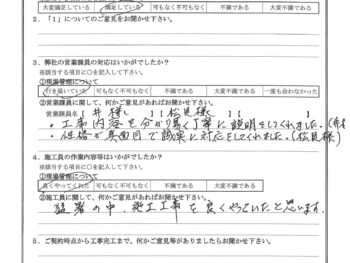 大変満足している 満足している 可もなく不可もなく 不満である 大変不満である
2．「1」についてのご意見をお聞かせ下さい。
3．弊社の営業課員の対応はいかがでしたか？
※該当する項目に○を記入して下さい。
①現場管理について
行き届いていた 可もなく不可もなく 不満である 大変不満である 一度も会わなかった
②営業課員に関して、何かご意見があればお聞かせ下さい。
営業課員名( 井 様 ) ( 松見 様 )
・工事内容を分かり易く丁寧に説明をしてくれました。(井
・性格が真面目で誠実に対応をしてくれました。(松見様)
4．施工員の作業内容等はいかがでしたか？
※該当する項目に○を記入して下さい。
①現場管理について
良くやってくれた 可もなく不可もなく 不満である 大変不満である
②施工員に関して、何かご意見があればお聞かせ下さい。
猛暑の中、施工工事を良くやっていたと思います。
5．ご契約時点から工事完工まで、何かご意見等がありましたらお聞かせ下さい。